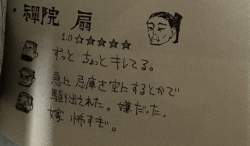 禪院 扇
1.0 ☆☆☆☆☆
ずっと ちょっと キレてる。
急に 忌庫を空にするとかで
駆り出された。嫌だった。
嫁 怖すぎ。